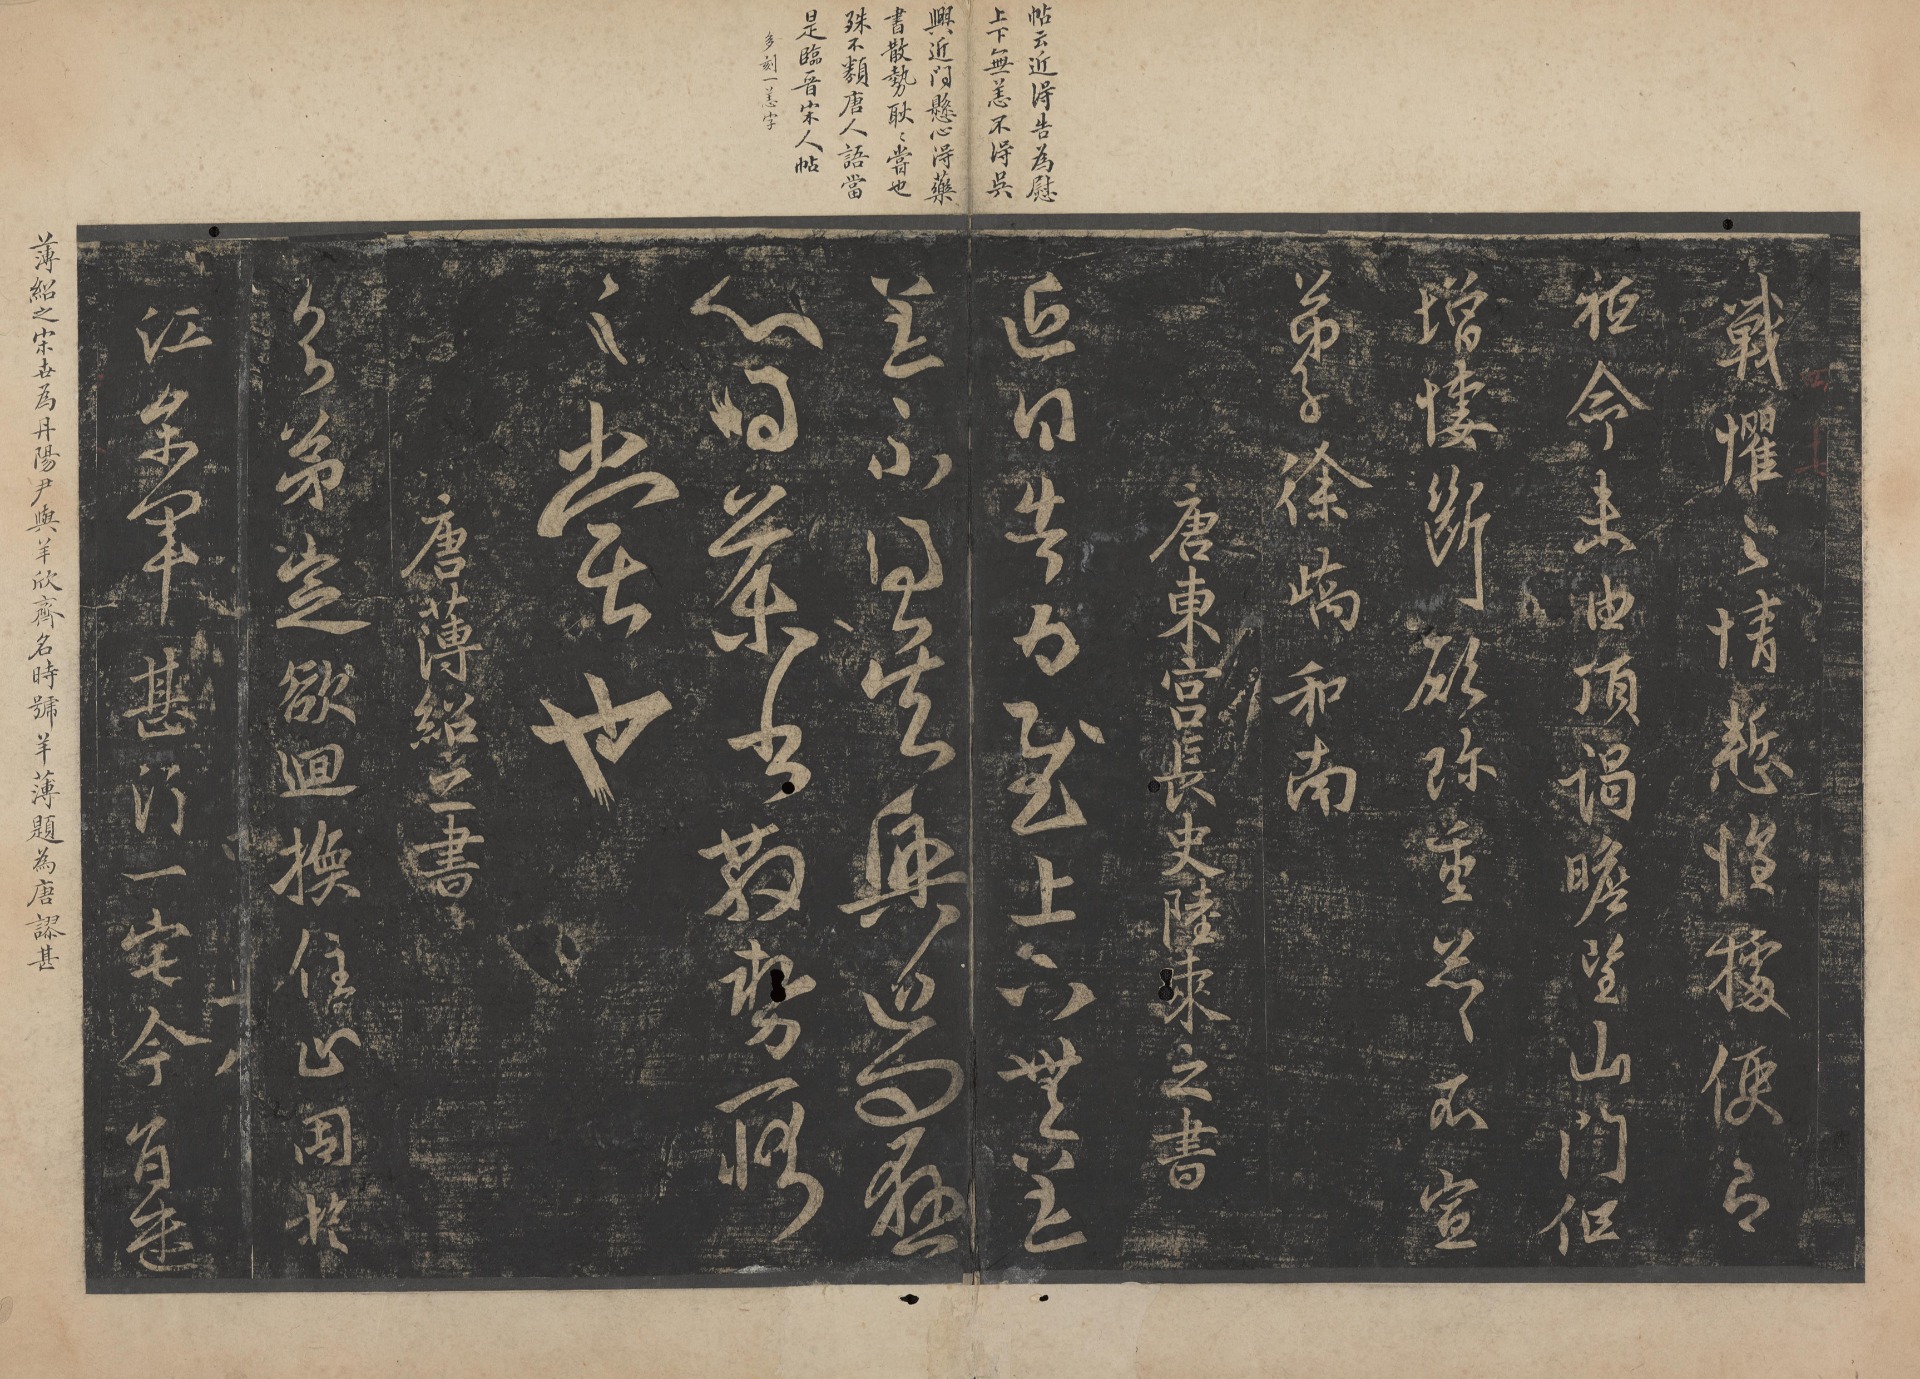 帖云近得告為慰
上下無恙不得吳
興近問懸心得藥
書散勢耿〻嘗也
殊不類唐人語當
是臨晉宋人帖
多刻一恙字
戰懼之情慙惶擾便即
祗命未由頂謁瞻望山門但
增悽斷願珎重〻不宣
弟子徐嶠和南
唐東宮長史陸柬之書
近得告為慰上下無恙
恙不得吳興近問懸
心得藥書散勢耿
〻嘗也
唐薄紹之書
弟岂欲迴換住山固
江參軍甚行一宅今首
薄紹之宋世為丹陽尹與羊欣齊名時號羊薄題為唐謬甚